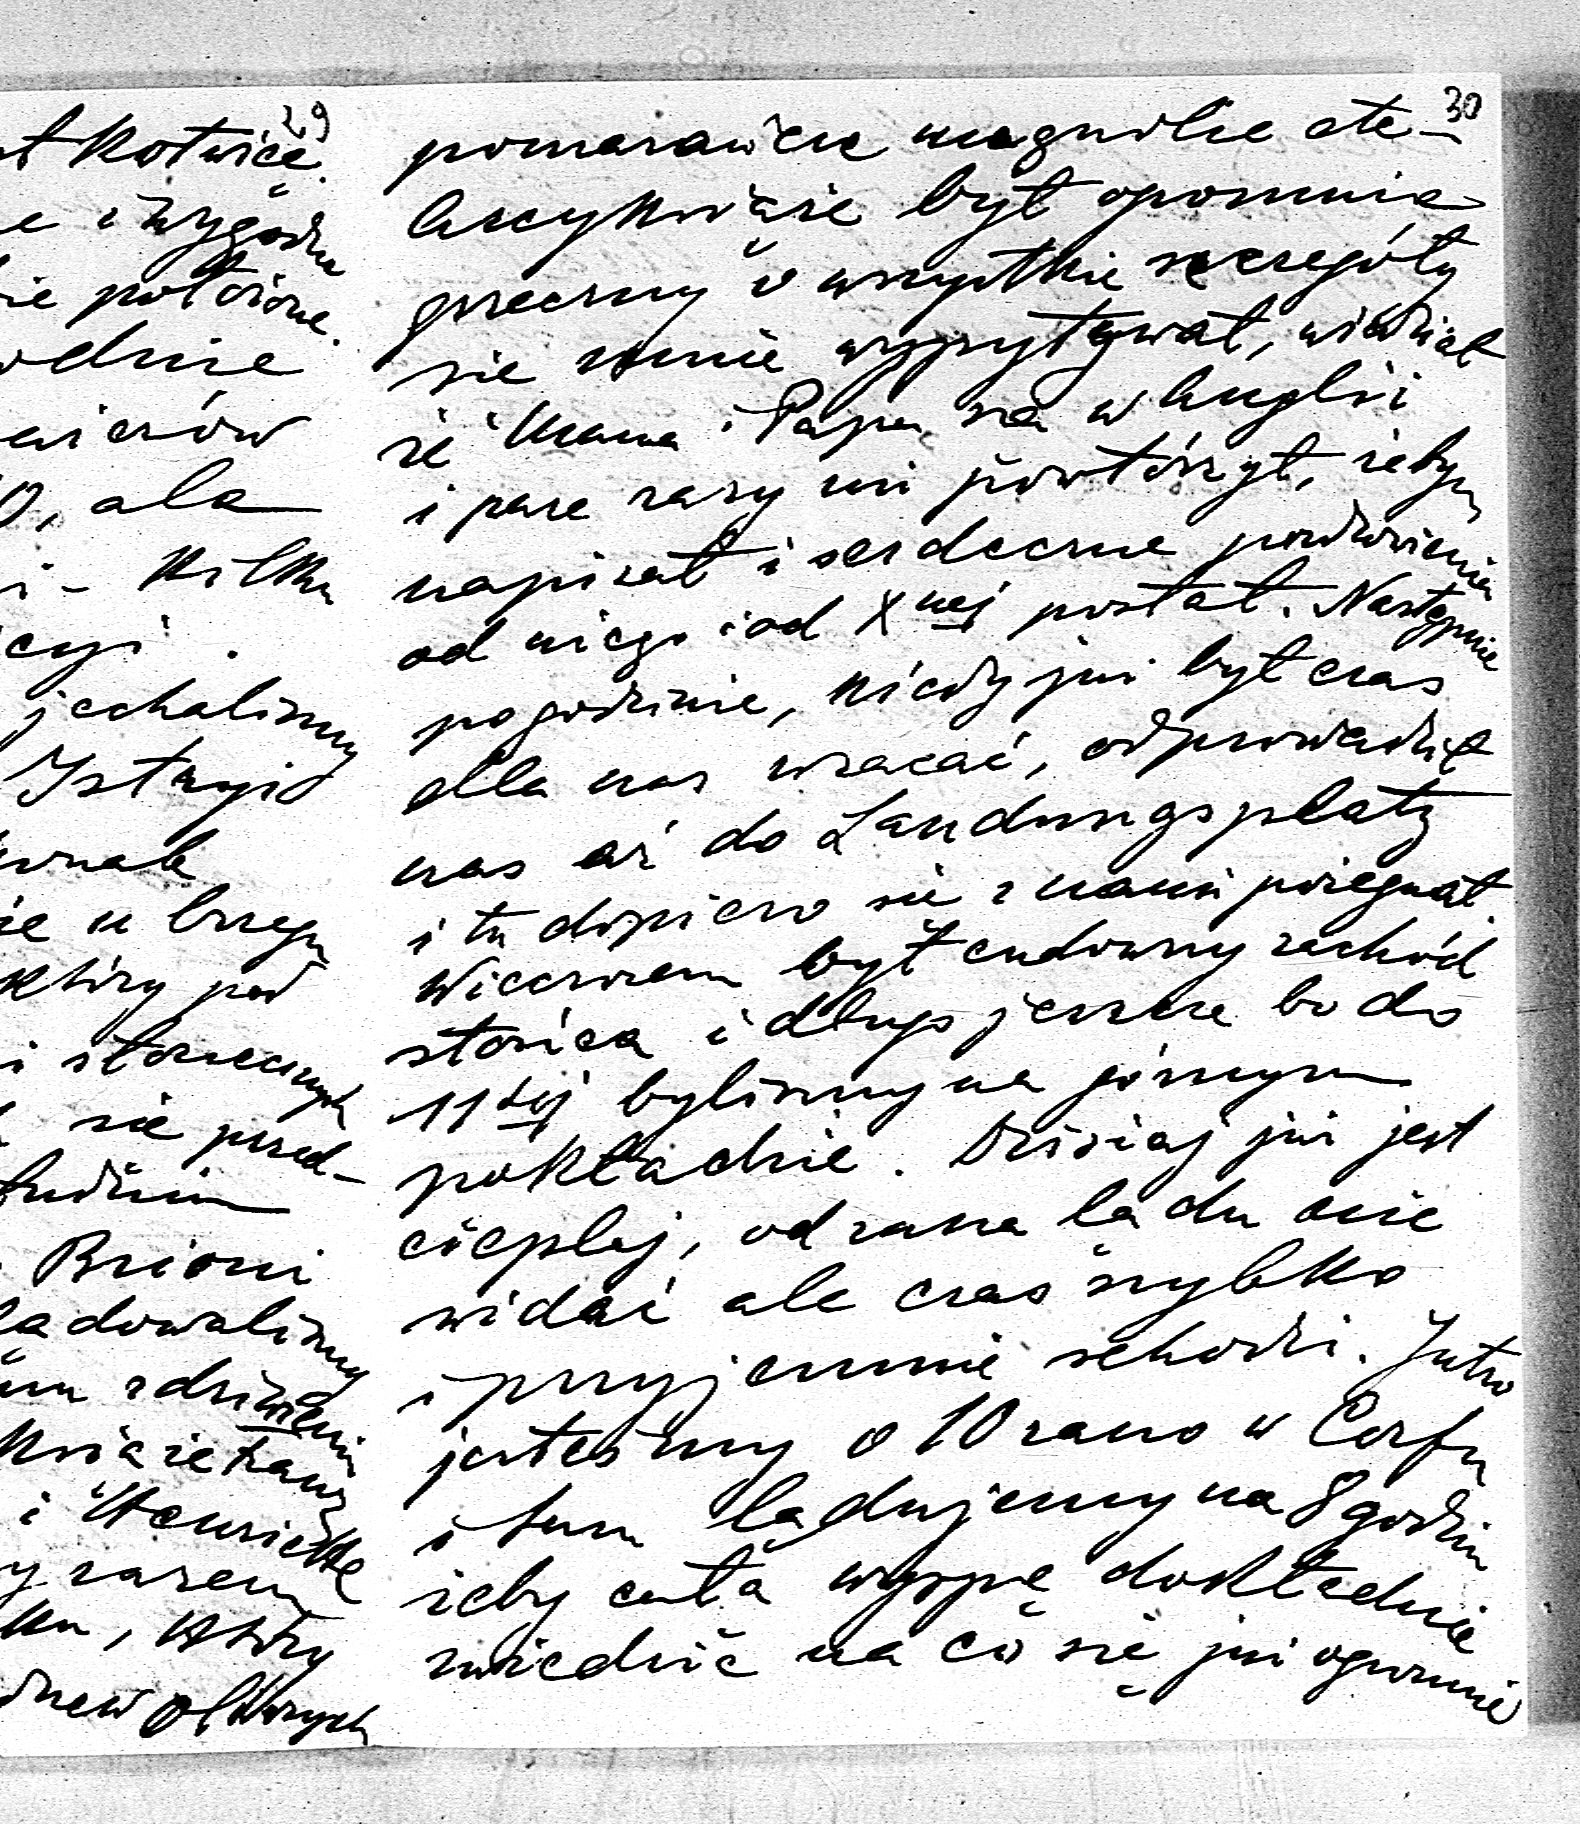 29
t Kotwicę.
e i wygodne
ie położone.
odnie
wiczów
0, ale
i - kilku
cyi.
jechaliśmy
Istryi
wnale
ie u brzegu
który pod
i słonecznych
się przed-
ludnim
Brioni
lądowaliśmy
zdziwieniu
Księżettami
i Henriettę
y razem
ku, który
drzew oliwnych
30
pomarańcze magnolie etc
Arcyksiąże był ogromnie
grzeczny o wszystkie szczegóły
się mnie wypytywał, wiedział
że Mama i Papa są w Anglii
i pare razy mi powtórzył, żebym
napisał i serdeczne pozdrowienia
od niego i od Xnej posłał. Następnie
po godzinie, kiedy już był czas
dla nas wracać, odprowadził
nas aż do Landungsplatz
i tu dopiero się z nami pożegnał.
Wieczorem był cudowny zachód
słońca i długo jeszcze bo do
11tej byliśmy na górnym
pokładzie. Dzisiaj już jest
cieplej, od rana lądu nie
widać ale czas szybko
i przyjemnie schodzi. Jutro
jesteśmy o 10 rano w Corfu
i tam lądujemy na 8 godzin
żeby całą wyspę dokładnie
zwiedzić na co się już ogromnie